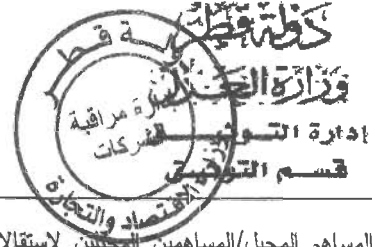 دولة قطر
وزارة العدل
إدارة التوثيق
قسم التوثيق
دولة قطر
إدارة مراقبة
الشركات
وزارة الاقتصاد والتجارة
المساهم المحيل/المساهمين المحيلين لاستقالا